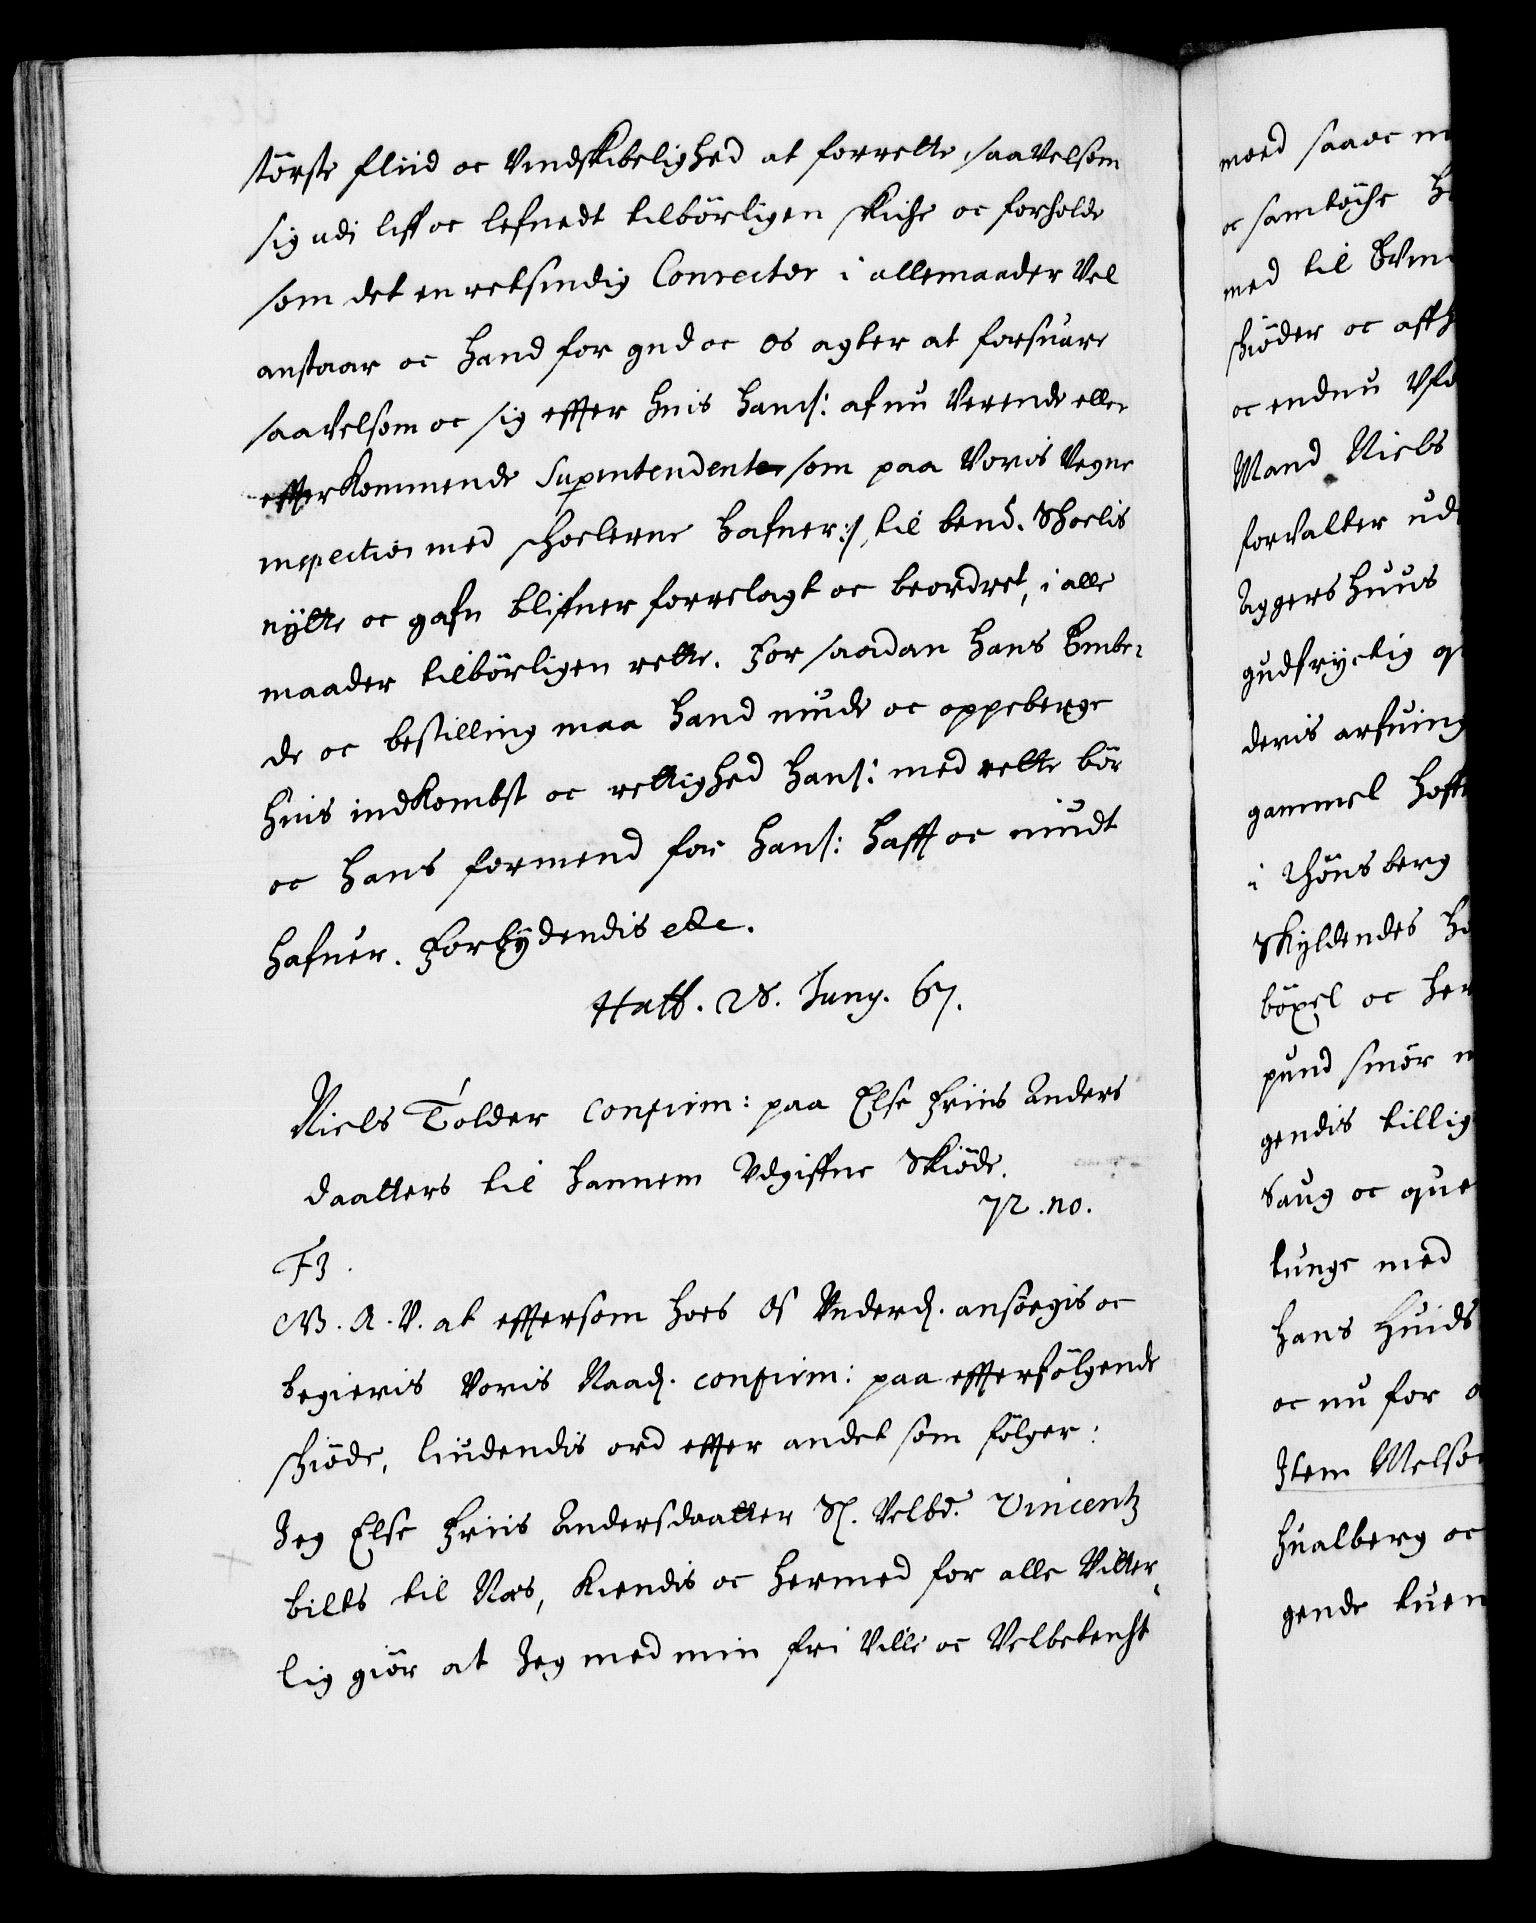 störste fliid oc Vindskibelighed at forrette, saavelsom
sig udi liff oc lefnedt tilbörligen skiche oc forholde
som det en retsindig Conrector i allemaader Vel
anstaar oc hand for gud oc os agter at forsuare
saavelsom oc sig effter huis hand: af nu Verende eller
effterkommende Superintendenter som paa Voris Vegne
inspection med scholerne hafuer:/ til bend. Scholis
nytte oc gafn blifuer forrelagt oc beordret, i alle
maader tilbörligen rette. For saadan hans Embe-
de oc bestilling maa hand niude oc oppeberge
huis indkombst oc rettighed hand: med rette bör
oc hans formend for hand: hafft oc niudt
hafuer. Forbydendis etc.
Haff. 28. Juny. 67.
Niels Tolder confirm: paa Else Friis Anders
daatters til hannem Udgiffne Skiöde.
72. no.
F3.
G. A. V. at efftersom hoes os Underd. ansöegis oc
begieris Voris Naad. confirm: paa effterfölgende
skiöde, liudendis ord effter andet som fölger:
Jeg Else Friis Andersdaatter Sl. Velbd. Vincentz
bilts til Næs, kiendis oc hermed for alle Vitter-
lig giör at Jeg med min fri Villie oc Velbetencht
moed saa oc
oc samtöche
med til
skiöder oc
oc endnu
Mand Niels
forvalter
Aggershuus
gudfryctig
deris arfuing
gammel
i Thönsberg
Skyldendes
böxel oc
pund smör
gendis tillig
Saug oc
tunge med
hans Huids
oc nu for
Item
Hualberg oc
gende